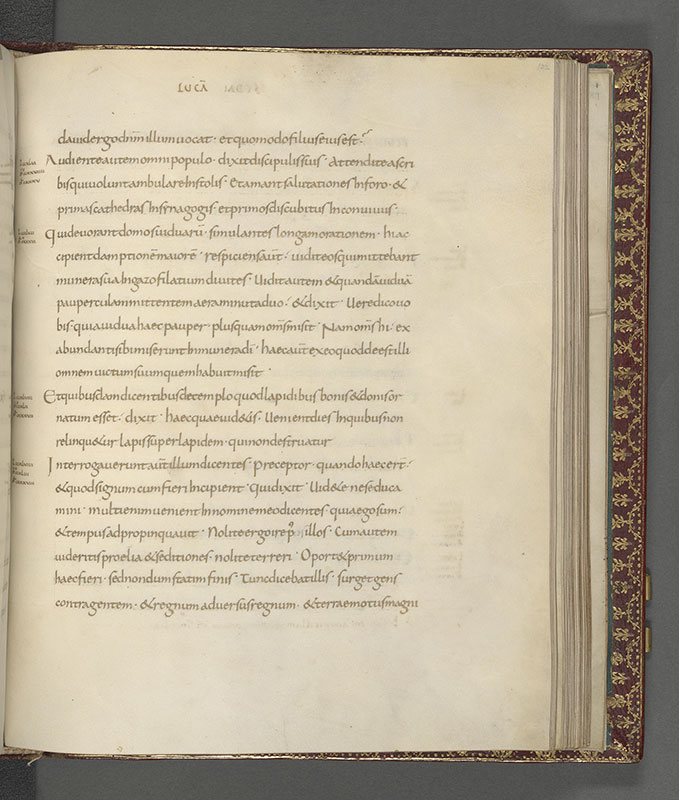 LUCĀ
dauid ergo dnm̄ illum uocat · et quomodo filius eius est ·?
Audiente autem omni populo · dixit discipulis suis · Attendite a scri
bis qui uolunt ambulare in stolis · Et amant salutationes in foro · &
primas cathedras in synagogis et primos discubitus in conuiuiis ·
qui deuorant domos uiduarū · simulantes longam orationem · hi ac
cipient damptionē maiorē · respiciens aūt · uidit eos qui mittebant
munera sua in gazofilatium diuites · Uidit autem & quandā uiduā
pauperculam mittentem aera minuta duo · & dixit · Uere dico uo
bis · quia uidua haec pauper · plus quam om̄s misit · Nam om̄s hi · ex
abundanti sibi miserunt in munera dī · haec aūt ex eo quod deest illi
omnem uictum suum quem habuit misit ·
Et quibusdam dicentibus de templo quod lapidibus bonis & donis or
natum esset · dixit · haec quae uid&is · Uenient dies in quibus non
relinqu&ur lapis super lapidem · qui non destruatur
Interrogauerunt aūt illum dicentes · Preceptor · quando haec er̄t ·
& quod signum cum fieri incipient · qui dixit · Uid&e ne seduca
mini · multi enim uenient in nomine meo dicentes · quia ego sum ·
& tempus adpropinquauit · Nolite ergo ire p̊ illos · Cum autem
uideritis proelia & seditiones · nolite terreri · Oport& primum
haec fieri · sed nondum statim finis · Tunc dicebat illis · surget gens
contra gentem · & regnum aduersus regnum · & terrae motus magni